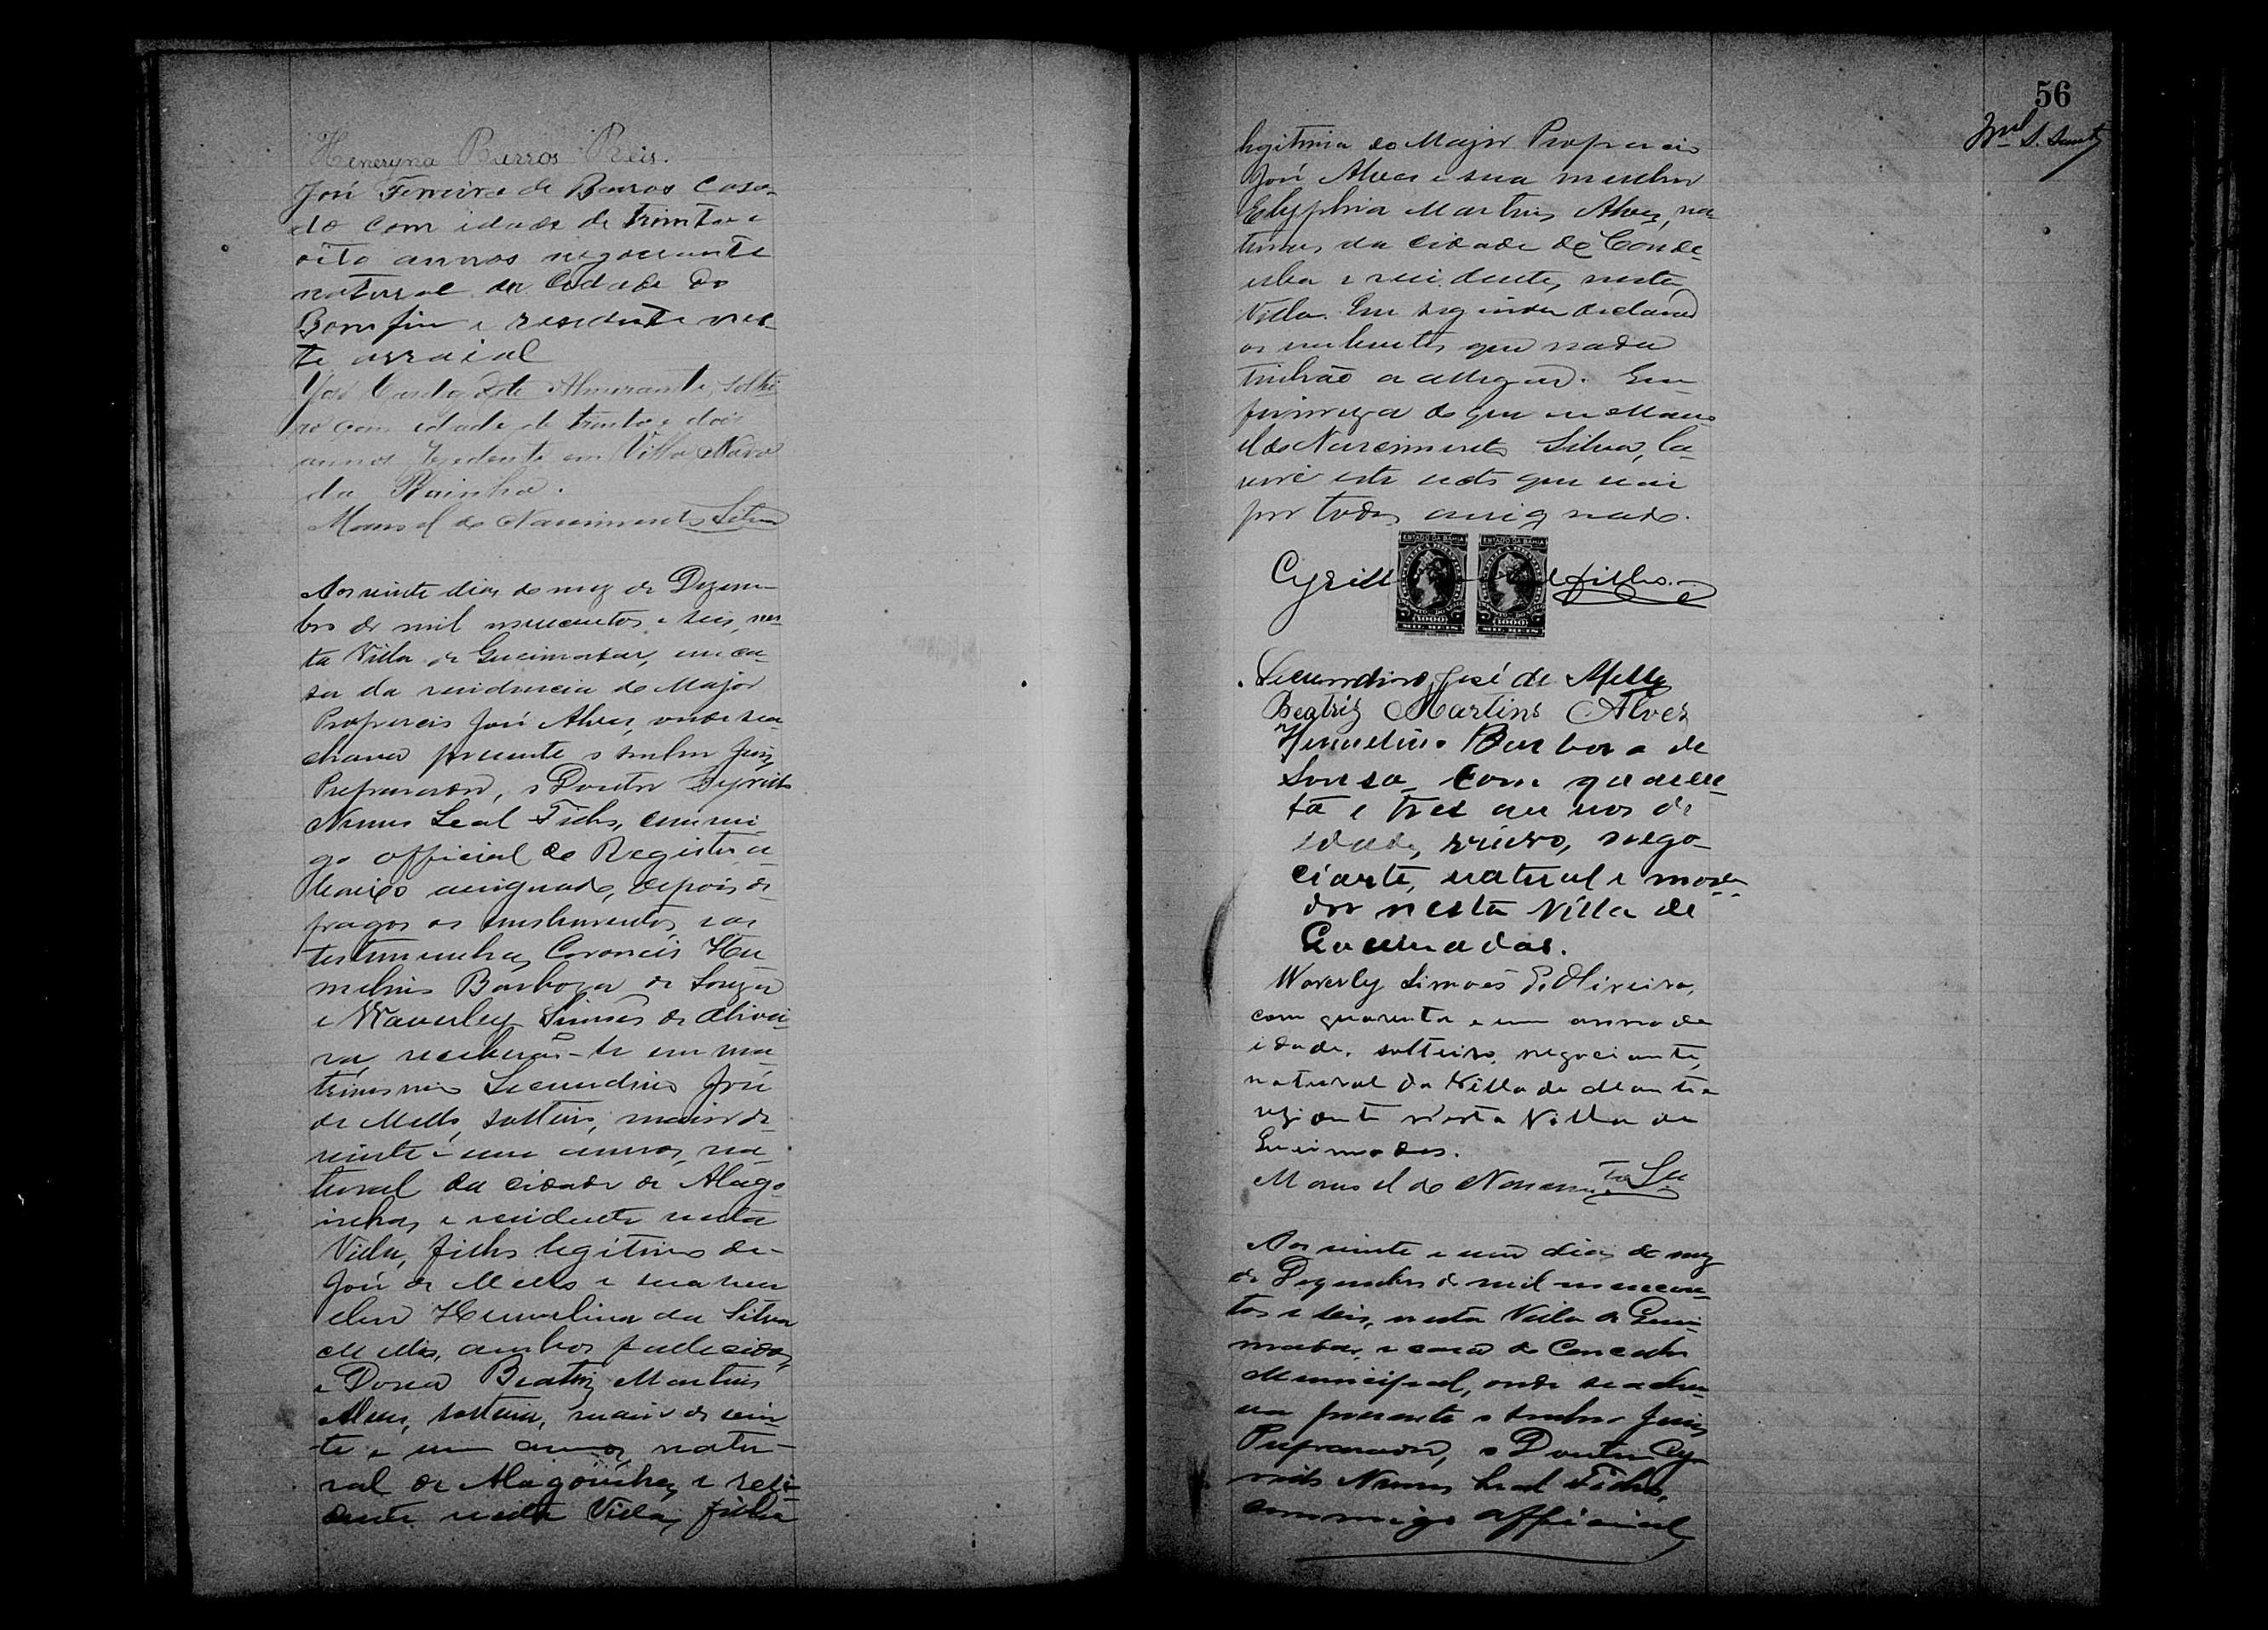 Heneryna Barros Reis.
José Ferreira de Barros casa-
do com idade de trinta e
oito annos negociante
natural da Cidade do
Bomfim e residente nes-
te arraial
José Almirante, soltei
ro com idade de trinta e dois
annos residente em Villa Nova
da Rainha.
Manoel do Nascimento Silva
Aos vinte dias do mez de Dezem-
bro de mil novecentos e seis, nes-
ta Villa de Queimadas, em ca-
sa da residencia do Major
Propercio José Alves, onde se a-
chava presente o senhor Juiz
Preparador, o Doutor Cyrillo
Nunes Leal Filho, commi-
go official do Registro a-
baixo assignado, depois de
pagos os emolumentos, e as
testemunhas Coroneis Her
melino Barboza de Souza
e Waverley Simões de Olivei-
ra, receberão-se em ma-
trimonio Secundino José
de Mello, solteiro, maior de
vinte e um annos, na-
tural da cidade de Alago-
inhas, e residente nesta
Villa, filho legitimo de
José de Mello e sua mu
lher Hermelina da Silva
Mello, ambos fallecidos,
e Dona Beatriz Martins
Alves, solteira, maior de vin-
te e um annos, natu-
ral de Alagoinhas, e resi-
dente nesta Villa, filha
56
legitima do Major Propercio
José Alves e sua mulher
Martins Alves, na-
turaes da cidade de Conde-
uba e residentes nesta
Villa. Em seguida declarou
os nubentes que nada
tinhão a allegar. Em
firmeza do que eu Mano-
el do Nascimento Silva, la-
vrei este acto que vai
por todos assignado.
Cyrillo Leal Filho.
ESTADO DA BAHIA ESTADO DA BAHIA
1000 1000
MIL REIS MIL REIS
Secundino José de Mello
Beatriz Martins Alves
Hermelino Barbosa de
Sousa com quaren-
ta e tres annos de
idade, viuvo, nego-
ciante, natural e mora-
dor nesta Villa de
Queimadas.
Waverly Simões d'Oliveira,
com quarenta e um anno de
idade, solteiro, negociante,
natural da Villa de Monte
rezidente nesta Villa de
Queimadas.
Manoel do Nascimto Sa
Aos vinte e um dias do mez
de Dezembro de mil novecen-
tos e seis, nesta Villa de Quei-
madas, e casa do Concelho
Municipal, onde se acha-
va presente o senhor Juiz
Preparador, o Doutor Cy-
rillo Nunes Leal Filho,
commigo official